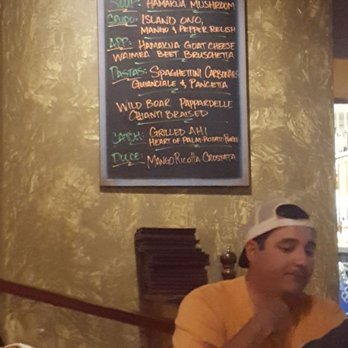 SOUP: HAMAKUA MUSHROOM
CRUDO: ISLAND ONO,
MANGO & PEPPER RELISH
APP: HAMAKUA GOAT CHEESE
WAIMEA BEET BRUSCHETTA
PASTAS: SPAGHETTINI CARBONARA
GUIANCIALE & PANCETTA
WILD BOAR PAPPARDELLE
CHIANTI BRAISED
CATCH: GRILLED AHI
HEART OF PALM-POTATO
DOLCE: MANGO RICOTTA CROSTATA